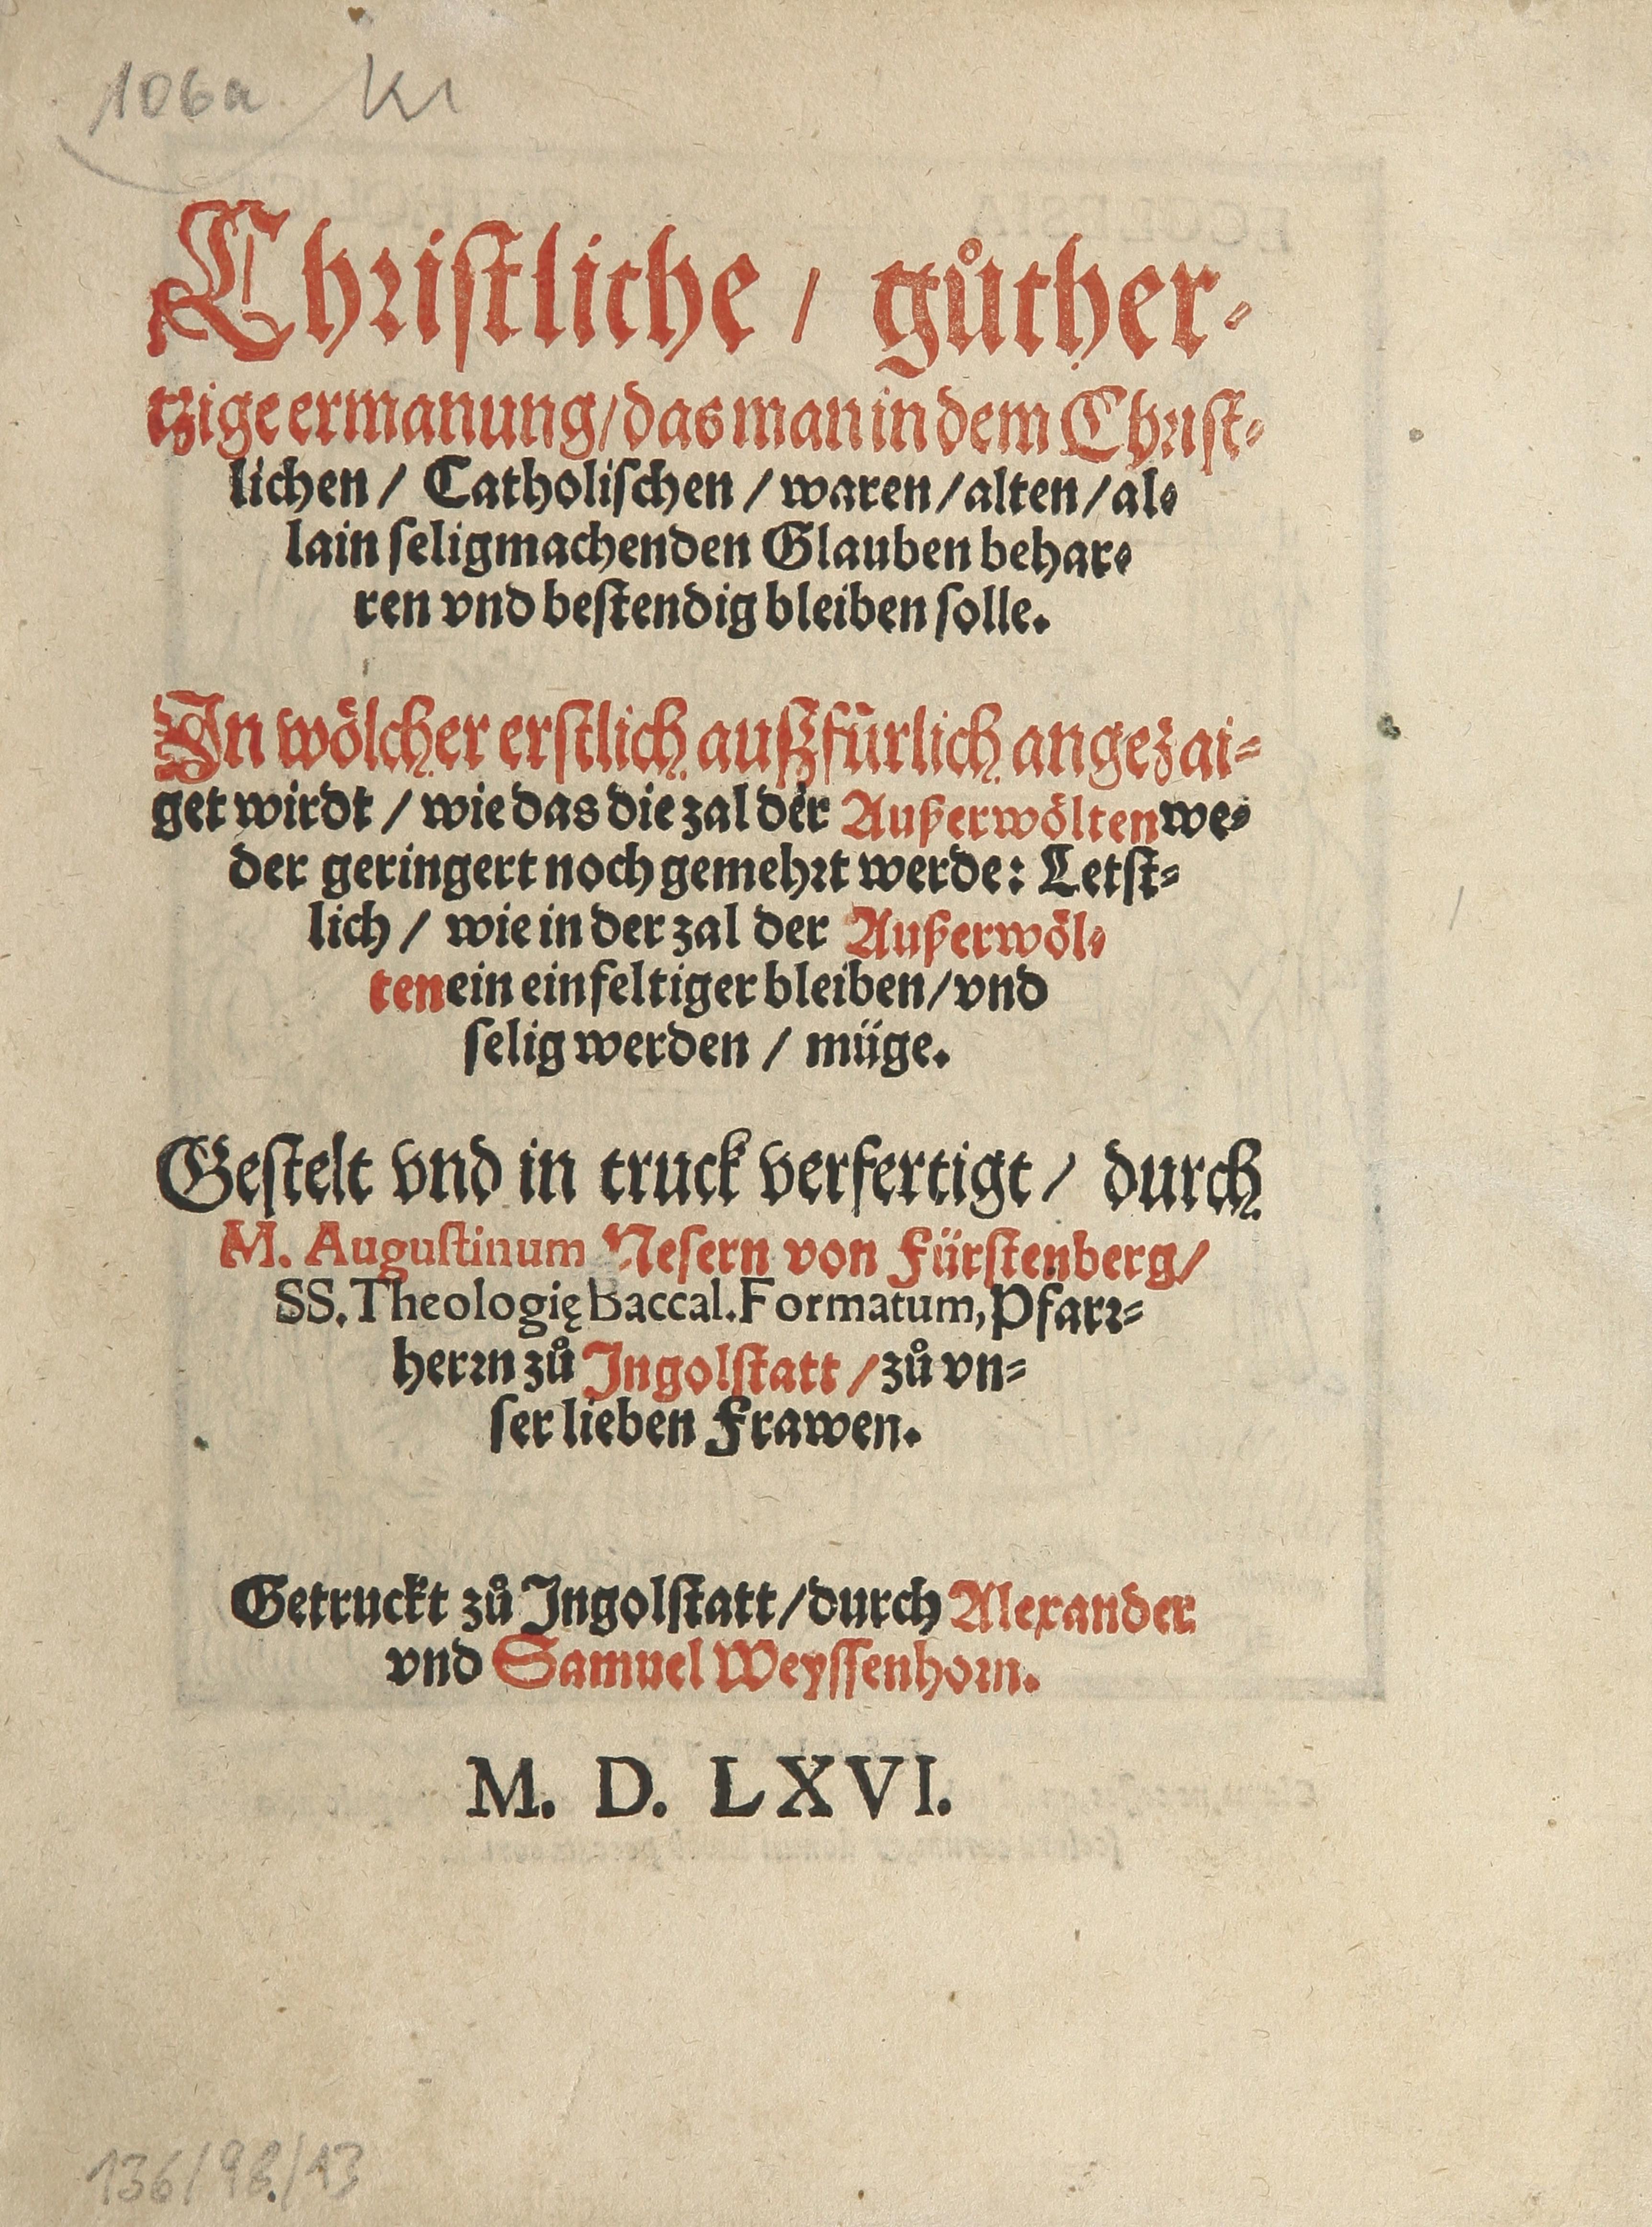 106a Kr
Christliche / gůther-
tzige ermanung / das man in dem Christ-
lichen / Catholischen / waren / alten / al-
lain seligmachenden Glauben behar-
ren vnd bestendig bleiben solle.
In wölcher erstlich außfürlich angezai-
get wirdt / wie das die zal der Außerwölten we-
der geringert noch gemehrt werde: Letst-
lich / wie in der zal der Außerwöl-
ten ein einfeltiger bleiben / vnd
selig werden / müge.
Gestelt vnd in truck verfertigt / durch
M. Augustinum Nesern von Fürstenberg /
SS. Theologię Baccal. Formatum, Pfarr-
herrn zů Ingolstatt / zů vn-
ser lieben Frawen.
Getruckt zů Ingolstatt / durch Alexander
vnd Samuel Weyssenhorn.
M. D. LXVI.
136/98/13